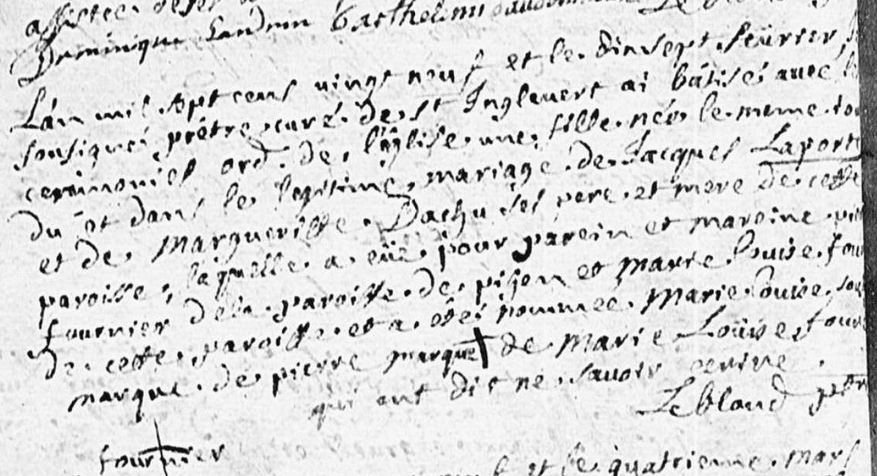 assistee
Dominique Barthelemi
L'an mil sept cens vingt nouf et le dix sept feürier,
sousigné prétre, curé de st Inglevert ai bâtisé avec
ceremonies ord. de l'église une fille née le meme jou
du et dans le legitime mariage de Jacques Laporte
et de Margueritte Dachu ses pere et mere de cette
paroisse, laquelle a eüe pour parein et maroine
fournier dela paroisse de pijen et marie louise four
de cette paroisse et a étée nommee Marie Louise, sou
marque de pierre marque de Marie Loüise four
qui ont dit ne savoir ecrire.
Leblond ptr
fournier
et le quatrieme Mars